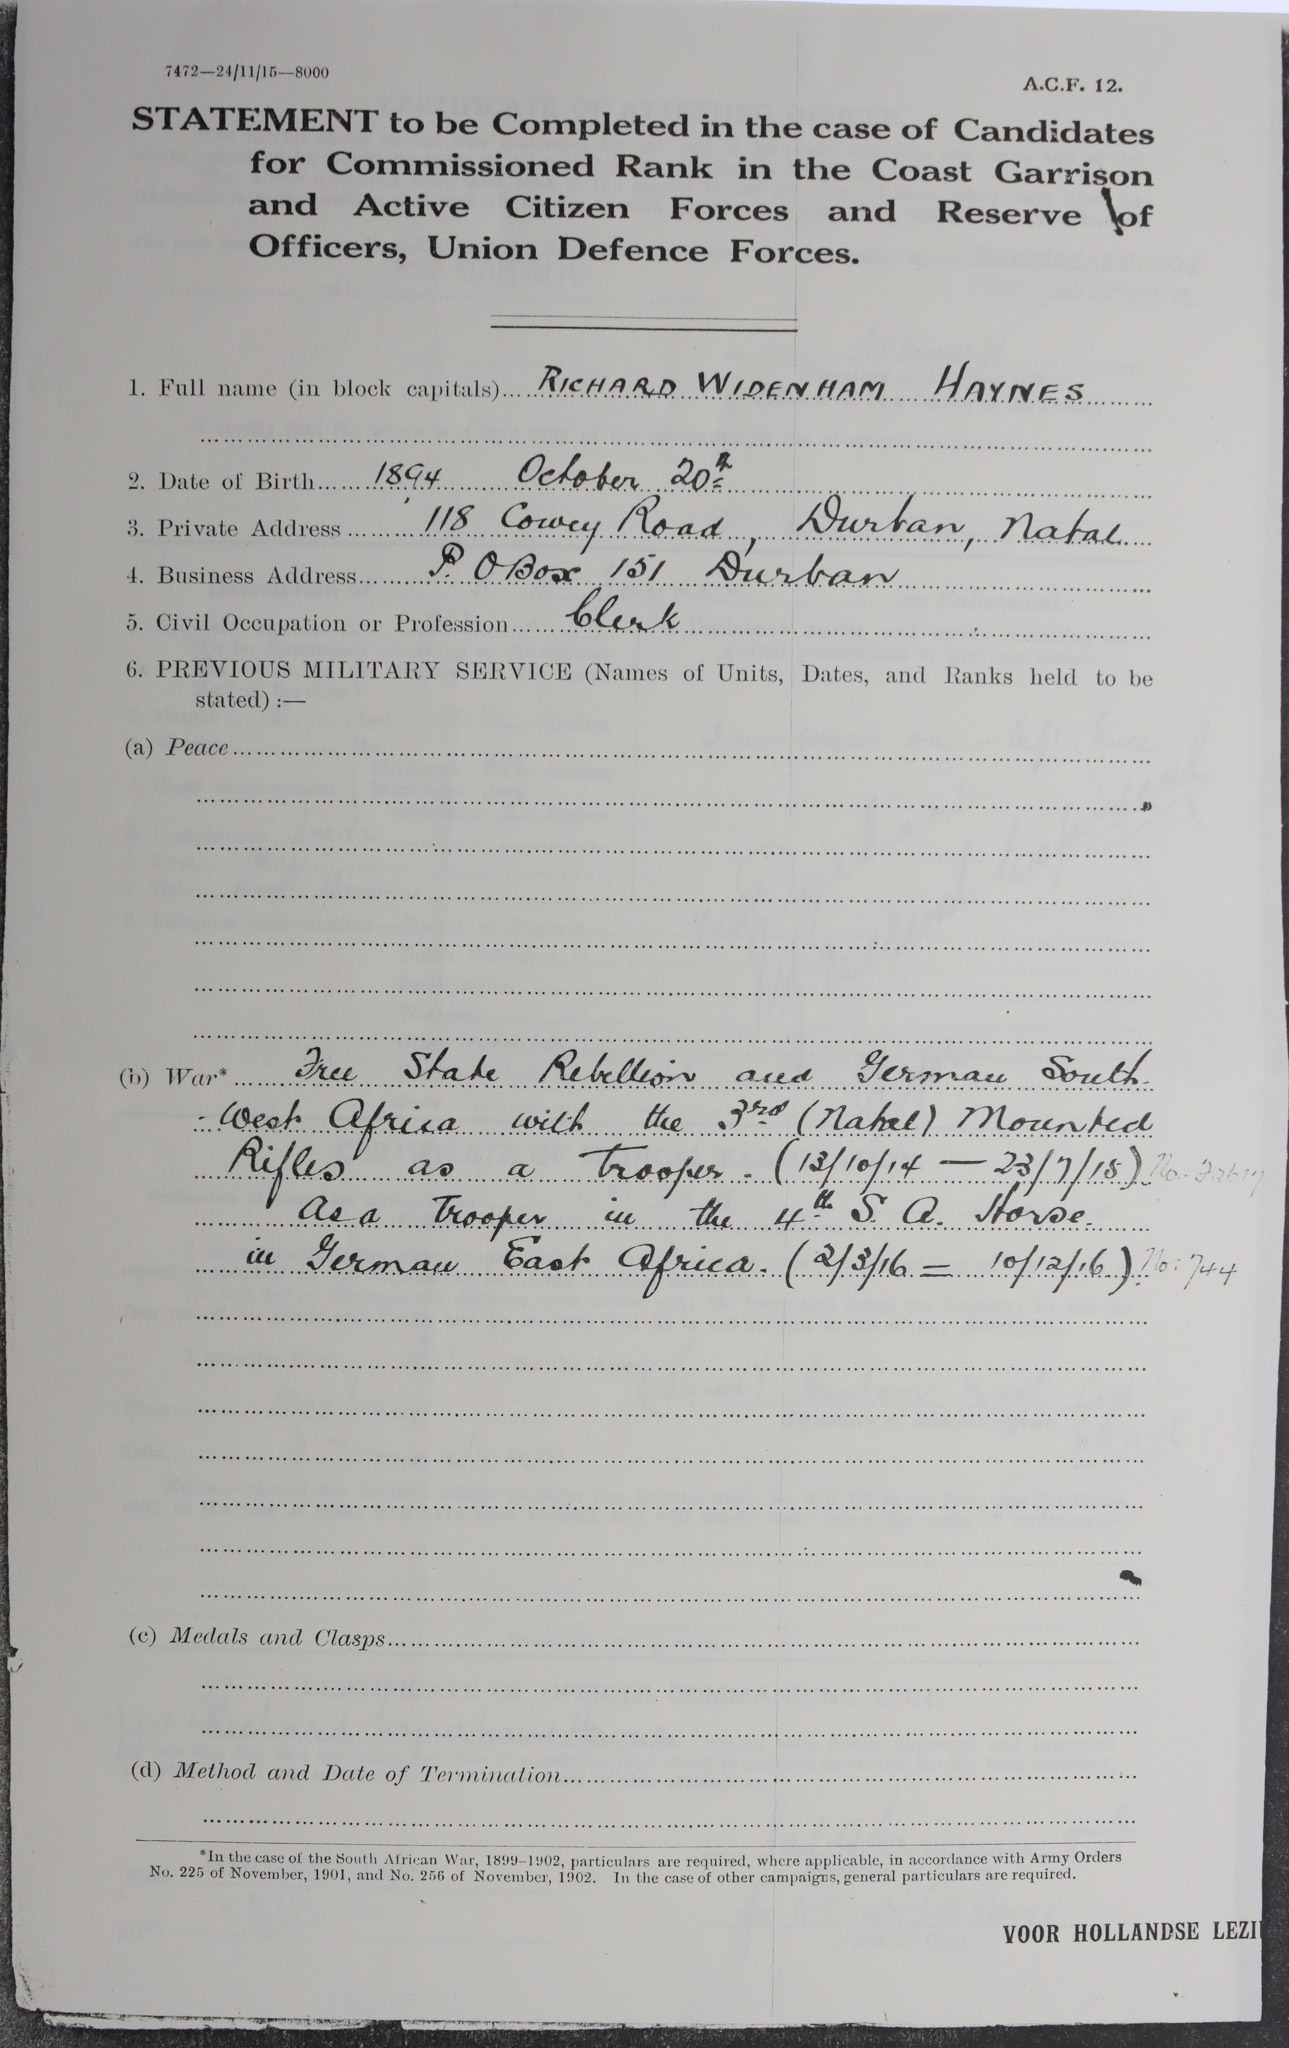 7472—24/11/15—8000
A.C.F. 12.
STATEMENT to be Completed in the case of Candidates
for Commissioned Rank in the Coast Garrison
and Active Citizen Forces and Reserve of
Officers, Union Defence Forces.
1. Full name (in block capitals)... RICHARD WIDENHAM HAYNES
2. Date of Birth...... 1894 October 20th
3. Private Address ......... 118 Cowey Road, Durban, Natal
4. Business Address...... P. O Box 151 Durban
5. Civil Occupation or Profession...... Clerk
6. PREVIOUS MILITARY SERVICE (Names of Units, Dates, and Ranks held to be
stated) :—
(a) Peace
(b) War* Free State Rebellion and German South
- West Africa with the 3rd (Natal) Mounted
Rifles as a Trooper. (13/10/14 — 23/7/15) No.
As a Trooper in the 4th S. A. Horse.
in German East Africa. (2/3/16 = 10/12/16) No: 744
(c) Medals and Clasps
(d) Method and Date of Termination
*In the case of the South African War, 1899-1902, particulars are required, where applicable, in accordance with Army Orders
No. 225 of November, 1901, and No. 256 of November, 1902. In the case of other campaigns, general particulars are required.
VOOR HOLLANDSE LEZI